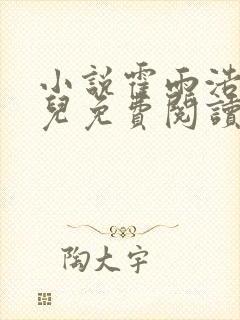 小説霍雨浩
兒免費閱讀
陶大宇